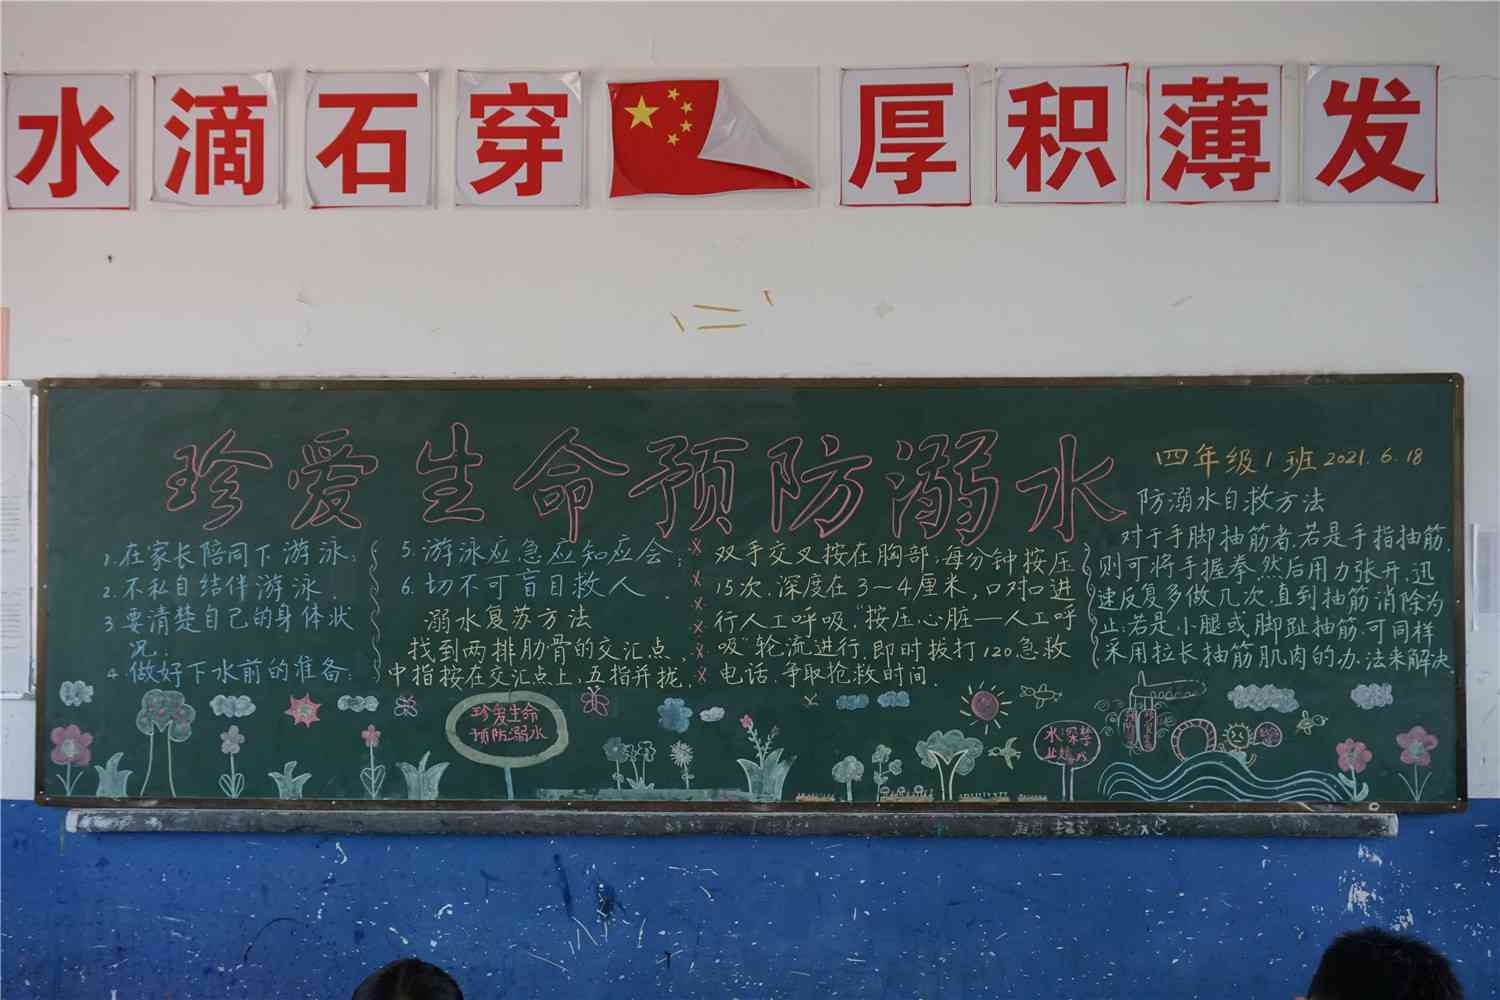 水滴石穿 厚积薄发
珍爱生命预防溺水
四年级1班 2021.6.18
1.在家长陪同下游泳;
2.不私自结伴游泳.
3要清楚自己的身体状
况.
4.做好下水前的准备;
5.游泳应急应知应会;
6.切不可盲目救人.
溺水复苏方法
找到两排肋骨的交汇点,
中指按在交汇点上,五指并拢,
双手交叉按在胸部,每分钟按压
15次.深度在3~4厘米,口对口进
行人工呼吸."按压心脏—人工呼
吸"轮流进行,即时拔打120急救
电话.争取抢救时间.
防溺水自救方法
对于手脚抽筋者,若是手指抽筋,
则可将手握拳,然后用力张开,迅
速反复多做几次,直到抽筋消除为
止;若是小腿或脚趾抽筋,可同样
采用拉长抽筋肌肉的办法来解决
珍爱生命
预防溺水
水深禁
止